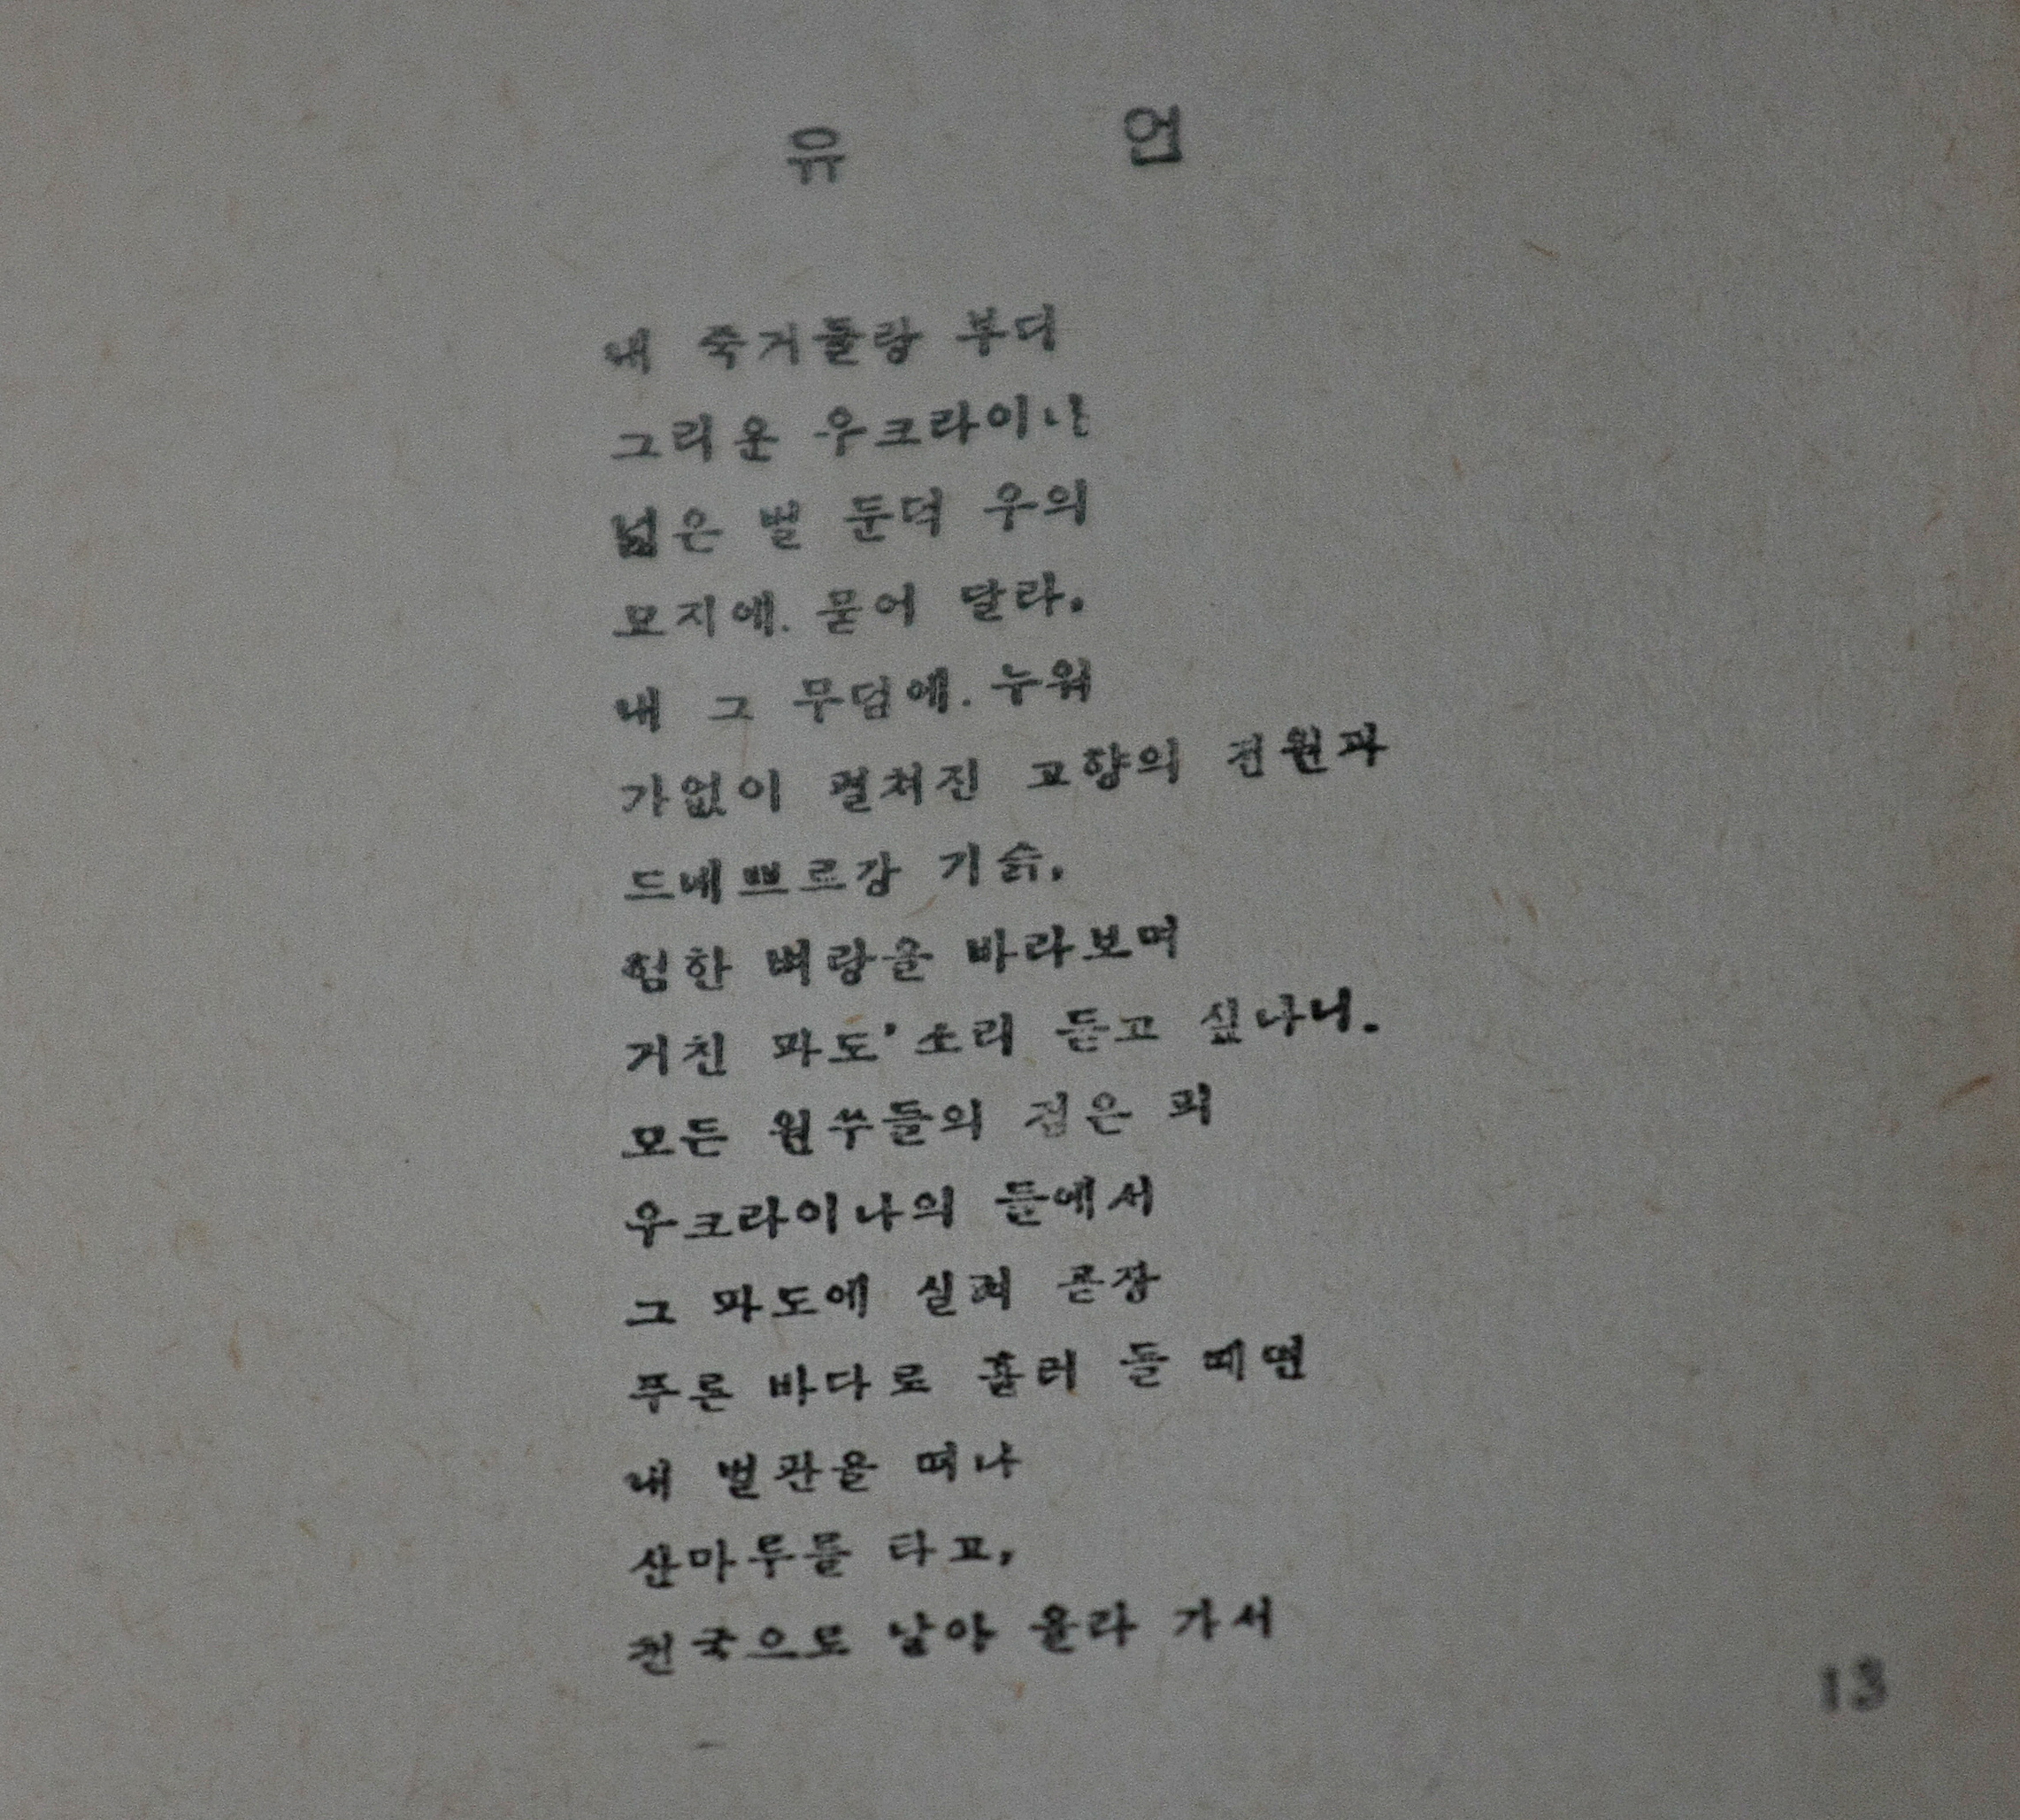 유 언
내 죽거들랑 부디
그리운 우크라이나
넓은 벌 둔덕 우의
묘지에 묻어 달라.
내 그 무덤에 누워
가없이 펼쳐진 고향의 전원과
드네쁘르강 기슭,
험한 벼랑을 바라보며
거친 파도'소리 듣고 싶나니.
모든 원쑤들의 검은 피
우크라이나의 들에서
그 파도에 실려 곧장
푸른 바다로 흘러 들 때면
내 벌판을 떠나
산마루를 타고,
천국으로 날아 올라 가서
13